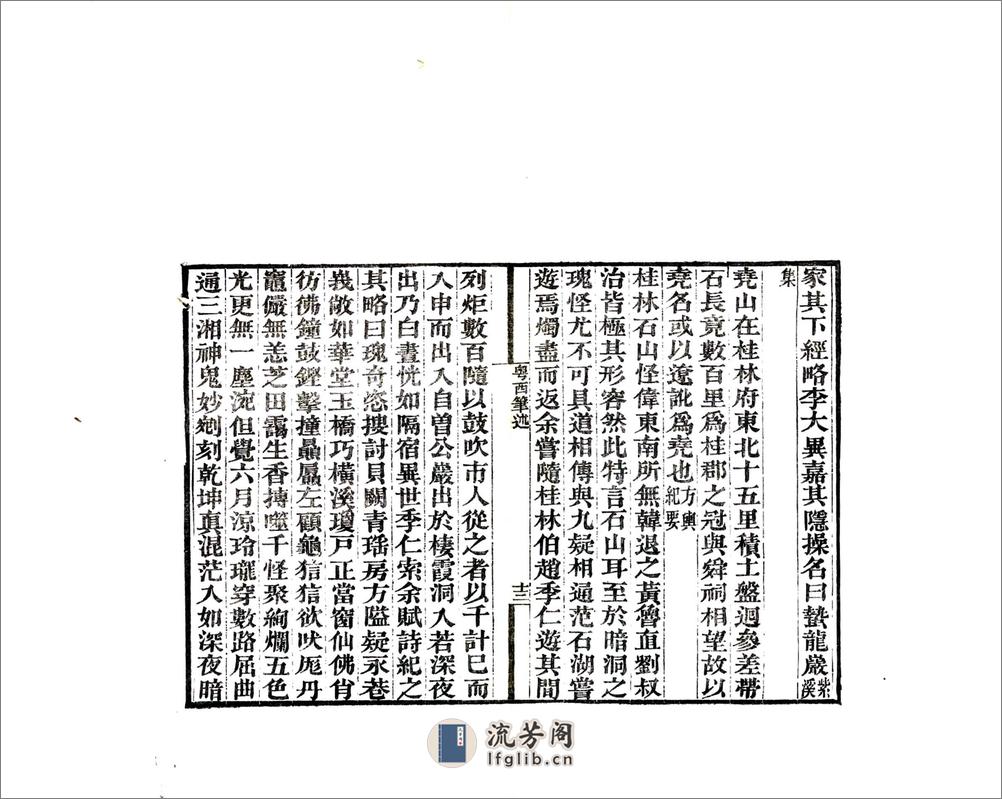 家其下經略李大異嘉其隱操名曰蟄龍巖紫溪
集
堯山在桂林府東北十五里積土盤迴參差帶
石長竟數百里爲桂郡之冠與舜祠相望故以
堯名或以遼訛爲堯也方輿紀要
桂林石山怪偉東南所無韓退之黃魯直劉叔
治皆極其形容然此特言石山耳至於暗洞之
瑰怪尤不可具道相傳與九疑相通范石湖嘗
遊焉燭盡而返余嘗隨桂林伯趙季仁遊其間
粵西筆述
十三
列炬數百隨以鼓吹市人從之者以千計巳而
入申而出入自曾公巖出於棲霞洞入若深夜
出乃白晝恍如隔宿異世季仁索余賦詩紀之
其略曰瑰奇恣搜討貝闕青瑶房方隘疑永巷
俄敞如華堂玉橋巧橫溪瓊戸正當窗仙佛肖
彷彿鐘鼓鏗擊撞贔屭左顧龜狺狺欲吠厖丹
竈儼無恙芝田靄生香摶噬千怪聚絢爛五色
光更無一塵涴但覺六月涼玲瓏穿數路屈曲
通三湘神鬼妙剜刻乾坤眞混茫入如深夜暗
流芳阁
lfglib.cn